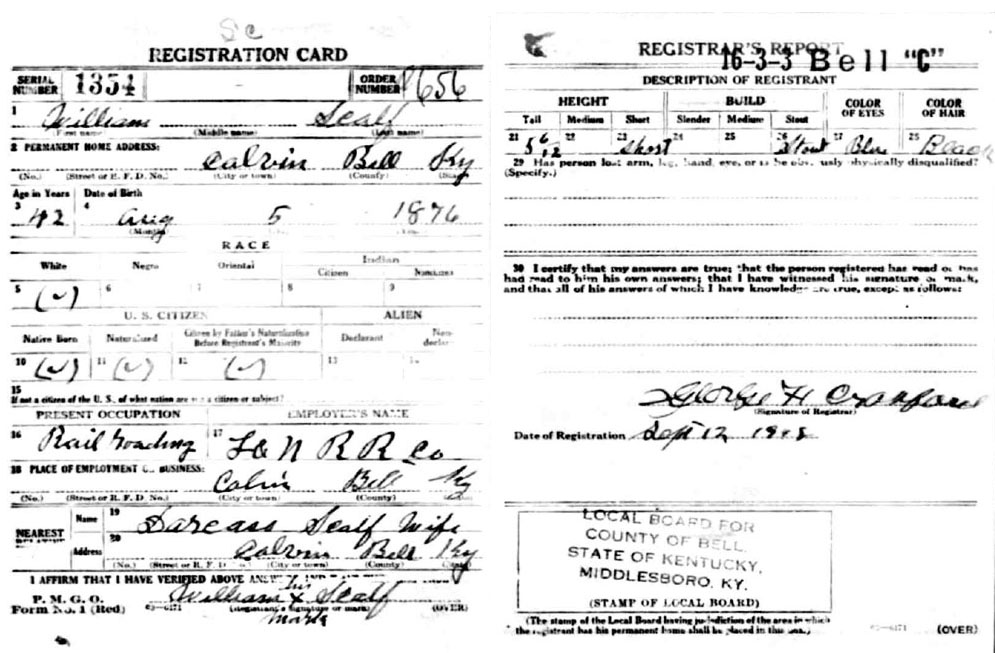 SC
REGISTRATION CARD
SERIAL NUMBER 1354 ORDER NUMBER 656
1 William Scalf
(First name) (Middle name) (Last name)
2 PERMANENT HOME ADDRESS:
Calvin Bell Ky
(No.) (Street or R. F. D. No.) (City or town) (County) (State)
Age in Years Date of Birth
3 42 4 Aug 5 1876
(Month)
RACE
White Negro Oriental Indian
Citizen
5 (✓) 6 7 8 9
U. S. CITIZEN ALIEN
Native Born Naturalized Citizen by Father's Naturalization Before Registrant's Majority Declarant Non-declarant
10 (✓) 11 (✓) 12 (✓) 13 14
15
If not a citizen of the U. S., of what nation are you a citizen or subject?
PRESENT OCCUPATION EMPLOYER'S NAME
16 Rail roading 17 L & N R R Co
18 PLACE OF EMPLOYMENT OR BUSINESS:
Calvin Bell Ky
(No.) (Street or R. F. D. No.) (City or town) (County)
NEAREST RELATIVE Name 19 Darcass Scalf Wife
Address 20 Calvin Bell Ky
(No.) (Street or R. F. D. No.) (City or town) (County) (State)
I AFFIRM THAT I HAVE VERIFIED ABOVE
P. M. G. O.
Form No. 1 (Red) William his X mark Scalf
(Registrant's signature or mark) (OVER)
REGISTRAR'S REPORT
16-3-3 Bell "C"
DESCRIPTION OF REGISTRANT
HEIGHT BUILD COLOR OF EYES COLOR OF HAIR
Tall Medium Short Slender Medium Stout
21 22 23 Short 24 25 26 Stout 27 Blue 28 Black
29 Has person lost arm, leg, hand, eye, or is he obviously physically disqualified?
(Specify.)
30 I certify that my answers are true; that the person registered has read or has
had read to him his own answers; that I have witnessed his signature or mark,
and that all of his answers of which I have knowledge are true, except as follows:
George H Crawford
(Signature of Registrar)
Date of Registration Sept 12 1918
LOCAL BOARD FOR
COUNTY OF BELL,
STATE OF KENTUCKY,
MIDDLESBORO, KY.
(STAMP OF LOCAL BOARD)
(The stamp of the Local Board having jurisdiction of the area in which
the registrant has his permanent home shall be placed in this box.)
(OVER)